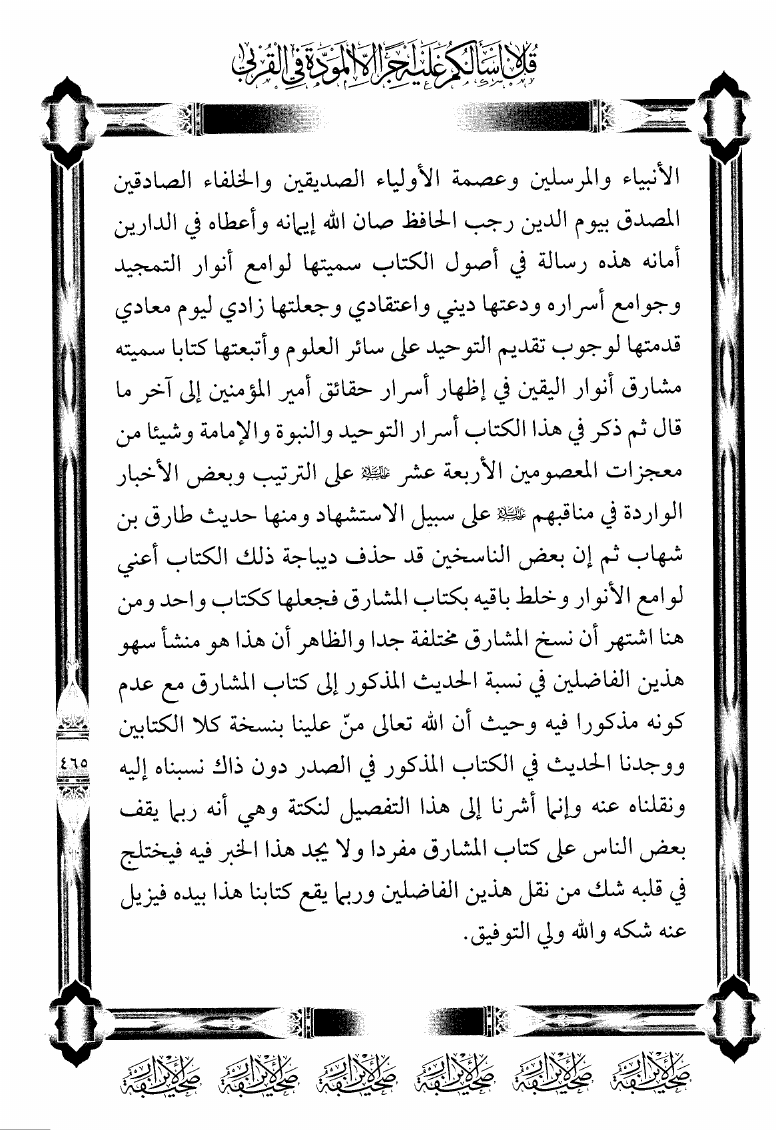 قل لا أسألكم عليه أجرا إلا المودة في القربى
الأنبياء والمرسلين وعصمة الأولياء الصديقين والخلفاء الصادقين
المصدق بيوم الدين رجب الحافظ صان الله إيمانه وأعطاه في الدارين
أمانه هذه رسالة في أصول الكتاب سميتها لوامع أنوار التمجيد
وجوامع أسراره ودعتها ديني واعتقادي وجعلتها زادي ليوم معادي
قدمتها لوجوب تقديم التوحيد على سائر العلوم وأتبعتها كتابا سميته
مشارق أنوار اليقين في إظهار أسرار حقائق أمير المؤمنين إلى آخر ما
قال ثم ذكر في هذا الكتاب أسرار التوحيد والنبوة والإمامة وشيئا من
معجزات المعصومين الأربعة عشر عليهم السلام على الترتيب وبعض الأخبار
الواردة في مناقبهم عليهم السلام على سبيل الاستشهاد ومنها حديث طارق بن
شهاب ثم إن بعض الناسخين قد حذف ديباجة ذلك الكتاب أعني
لوامع الأنوار وخلط باقيه بكتاب المشارق فجعلها ككتاب واحد ومن
هنا اشتهر أن نسخ المشارق مختلفة جدا والظاهر أن هذا هو منشأ سهو
هذين الفاضلين في نسبة الحديث المذكور إلى كتاب المشارق مع عدم
كونه مذكورا فيه وحيث أن الله تعالى منّ علينا بنسخة كلا الكتابين
ووجدنا الحديث في الكتاب المذكور في الصدر دون ذاك نسبناه إليه
ونقلناه عنه وإنما أشرنا إلى هذا التفصيل لنكتة وهي أنه ربما يقف
بعض الناس على كتاب المشارق مفردا ولا يجد هذا الخبر فيه فيختلج
في قلبه شك من نقل هذين الفاضلين وربما يقع كتابنا هذا بيده فيزيل
عنه شكه والله ولي التوفيق.
٤٦٥
صحيفة الأبرار صحيفة الأبرار صحيفة الأبرار صحيفة الأبرار صحيفة الأبرار صحيفة الأبرار